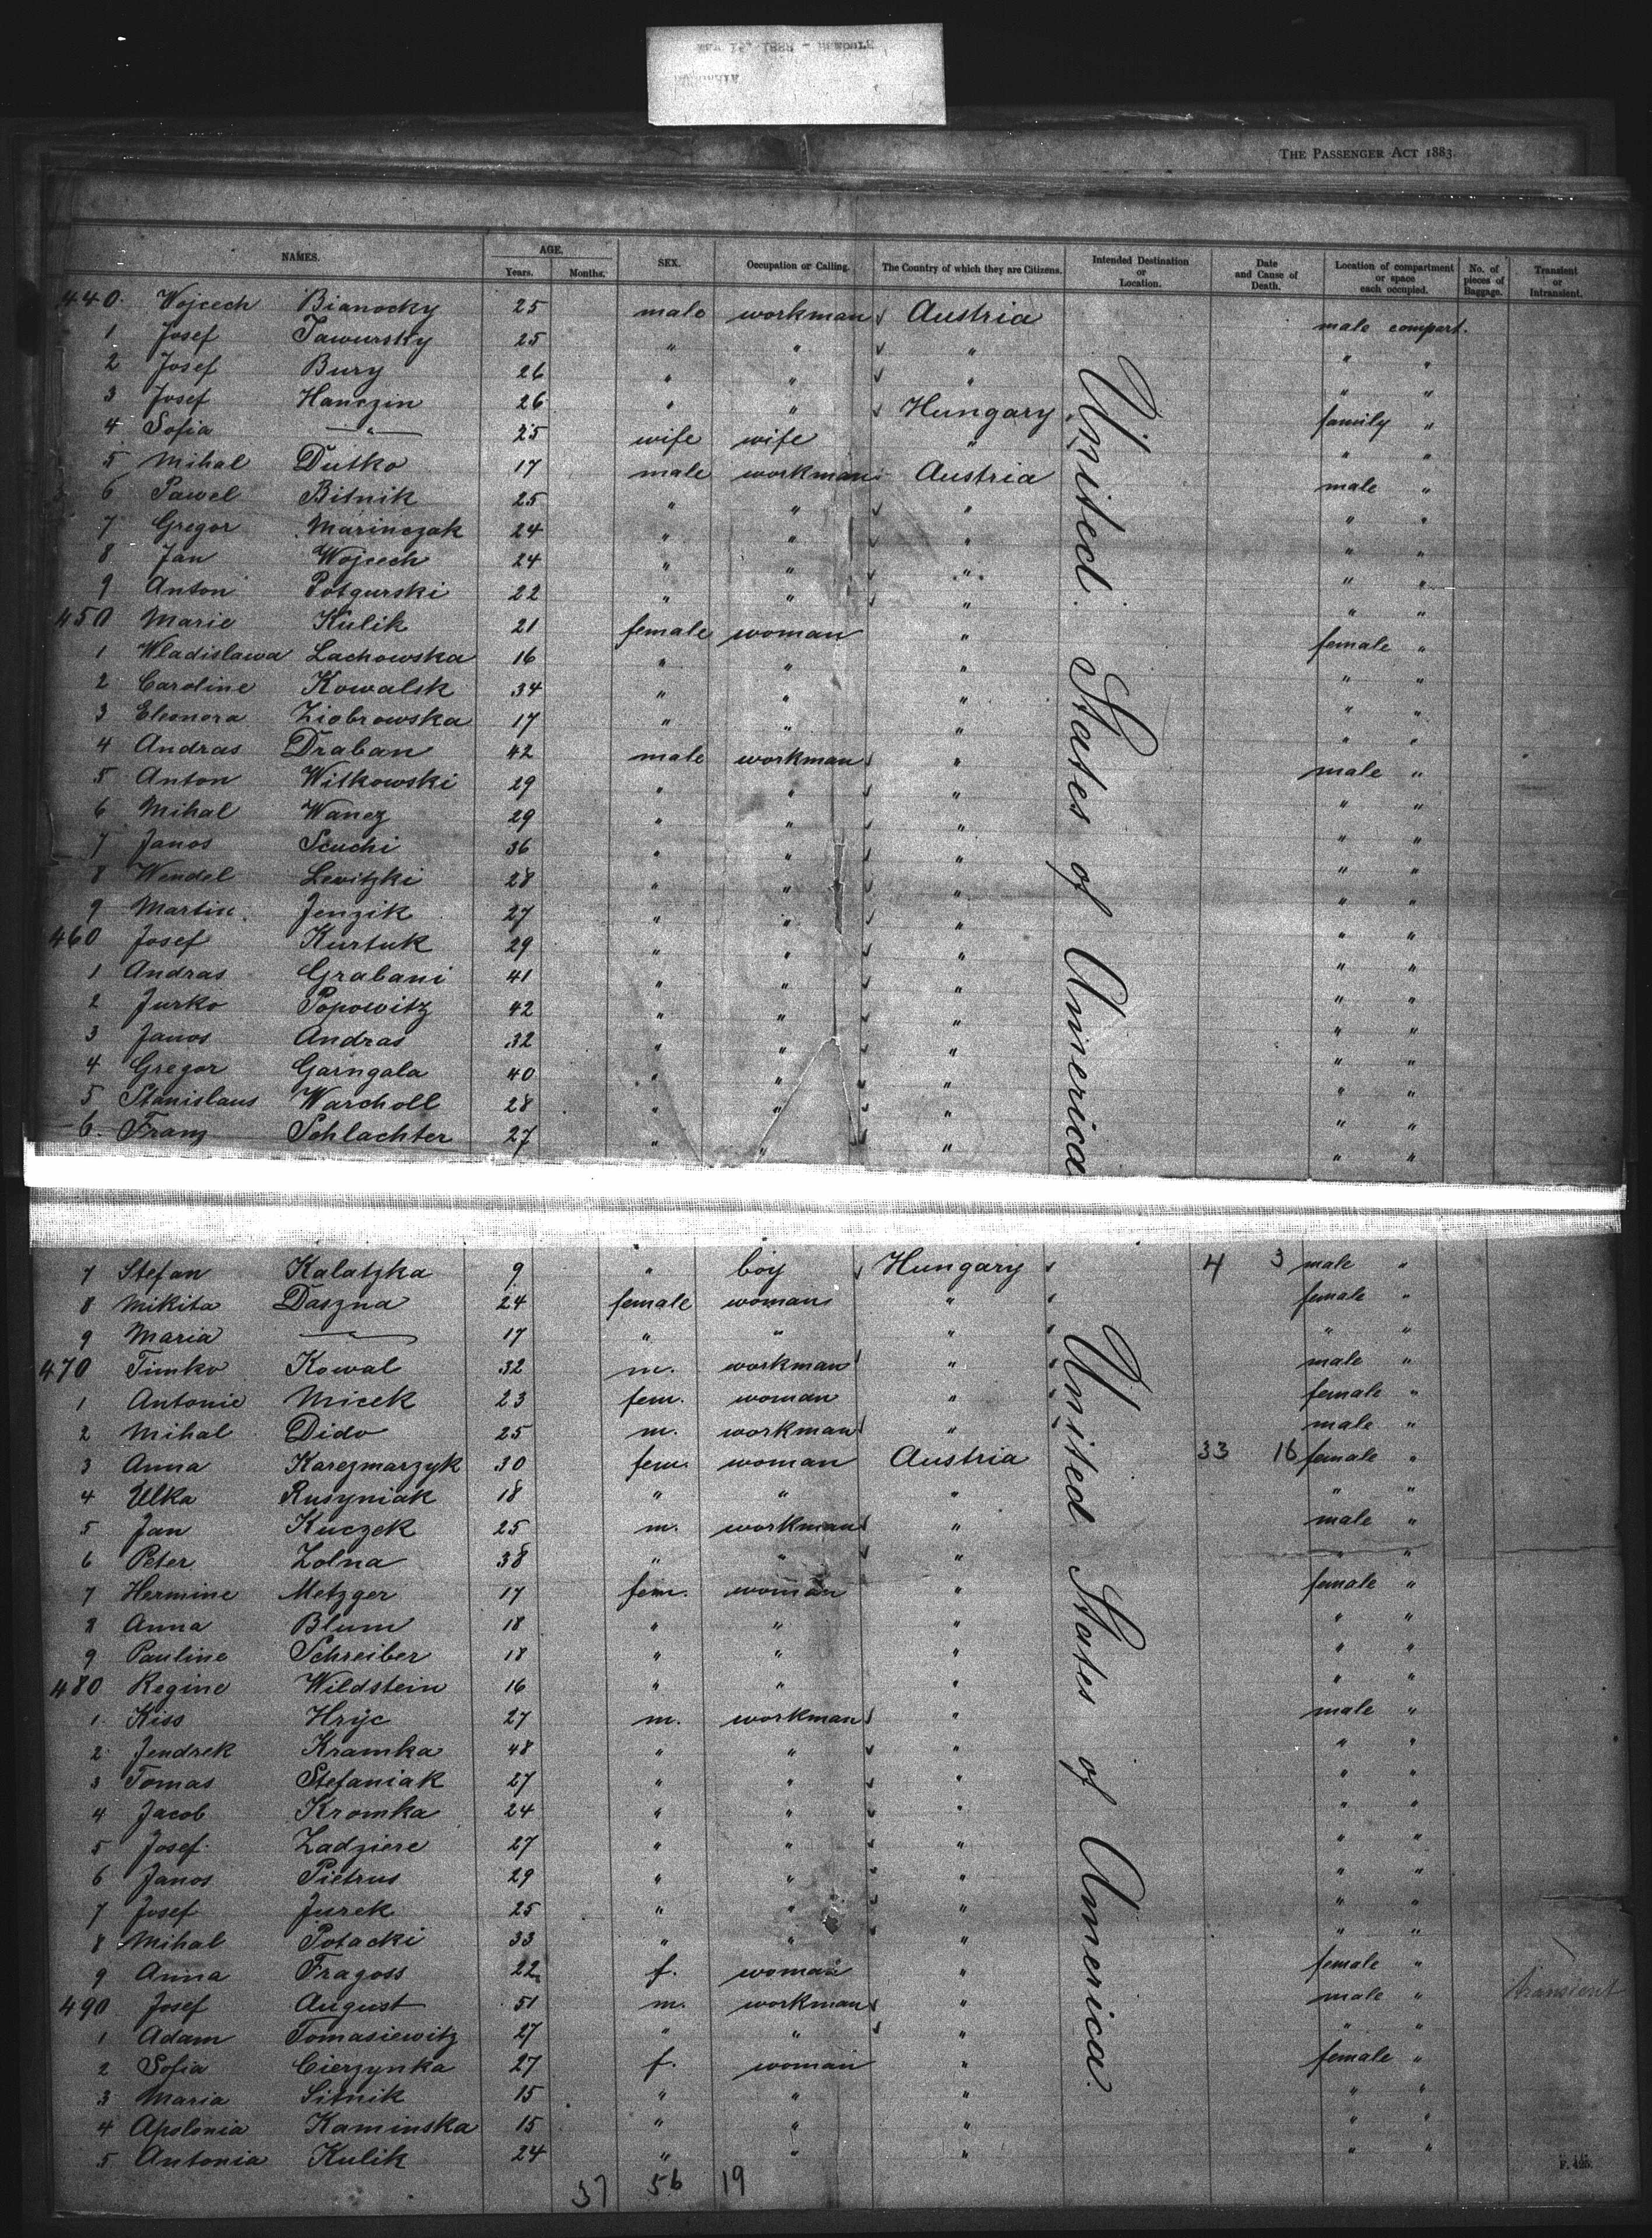 THE PASSENGER ACT 1883.
NAMES. AGE. Years. Months. SEX. Occupation or Calling. The Country of which they are Citizens. Intended Destination or Location. Date and Cause of Death. Location of compartment or space each occupied. No. of pieces of Baggage. Transient or Intransient.
440. Wojcech Bianocky 25 male workman Austria male compart.
1 Josef Tawursky 25 " " " " "
2 Josef Bury 26 " " " " "
3 Josef Hanczin 26 " " Hungary family "
4 Sofia — " — 25 wife wife " " "
5 Mihal Dutko 17 male workman Austria male "
6 Pawel Bitnik 25 " " " " "
7 Gregor Marinczak 24 " " " " "
8 Jan Wojcech 24 " " " " "
9 Anton Potgurski 22 " " " " "
450 Marie Kulik 21 female woman " female "
1 Wladislawa Lachowska 16 " " " " "
2 Caroline Kowalsk 34 " " " " "
3 Eleonora Ziobrowska 17 " " " " "
4 Andras Draban 42 male workman " male "
5 Anton Witkowski 29 " " " " "
6 Mihal Wancz 29 " " " " "
7 Janos Scuchi 36 " " " " "
8 Wendel Lewitzki 28 " " " " "
9 Martin Jenzik 27 " " " " "
460 Josef Kurtuk 29 " " " " "
1 Andras Grabani 41 " " " " "
2 Jurko Popowitz 42 " " " " "
3 Janos Andras 32 " " " " "
4 Gregor Garngala 40 " " " " "
5 Stanislaus Warcholl 28 " " " " "
6. Franz Schlachter 27 " " " " "
United States of America
7 Stefan Kalatzka 9 " boy Hungary 4 3 male "
8 Mikita Daszna 24 female woman " female "
9 Maria — 17 " " " " "
470 Timko Kowal 32 m. workman " male "
1 Antonie Micek 23 fem. woman " female "
2 Mihal Dido 25 m. workman " male "
3 Anna Karczmarzyk 30 fem. woman Austria 33 16 female "
4 Ulka Rusyniak 18 " " " " "
5 Jan Kuczek 25 m. workman " male "
6 Peter Zolna 38 " " " " "
7 Hermine Metzger 17 fem. woman " female "
8 Anna Blum 18 " " " " "
9 Pauline Schreiber 18 " " " " "
480 Regine Wildstein 16 " " " " "
1 Kiss Hryc 27 m. workman " male "
2 Jendrek Kramka 48 " " " " "
3 Tomas Stefaniak 27 " " " " "
4 Jacob Kromka 24 " " " " "
5 Josef Zadziere 27 " " " " "
6 Janos Pietrus 29 " " " " "
7 Josef Jurek 25 " " " " "
8 Mihal Potacki 33 " " " " "
9 Anna Fragoss 22 f. woman " female "
490 Josef August 51 m. workman " male " transient
1 Adam Tomasiewitz 27 " " " " "
2 Sofia Cierzynka 27 f. woman " female "
3 Maria Sitnik 15 " " " " "
4 Apolonia Kaminska 15 " " " " "
5 Antonia Kulik 24 " " " " "
United States of America.
37 56 19